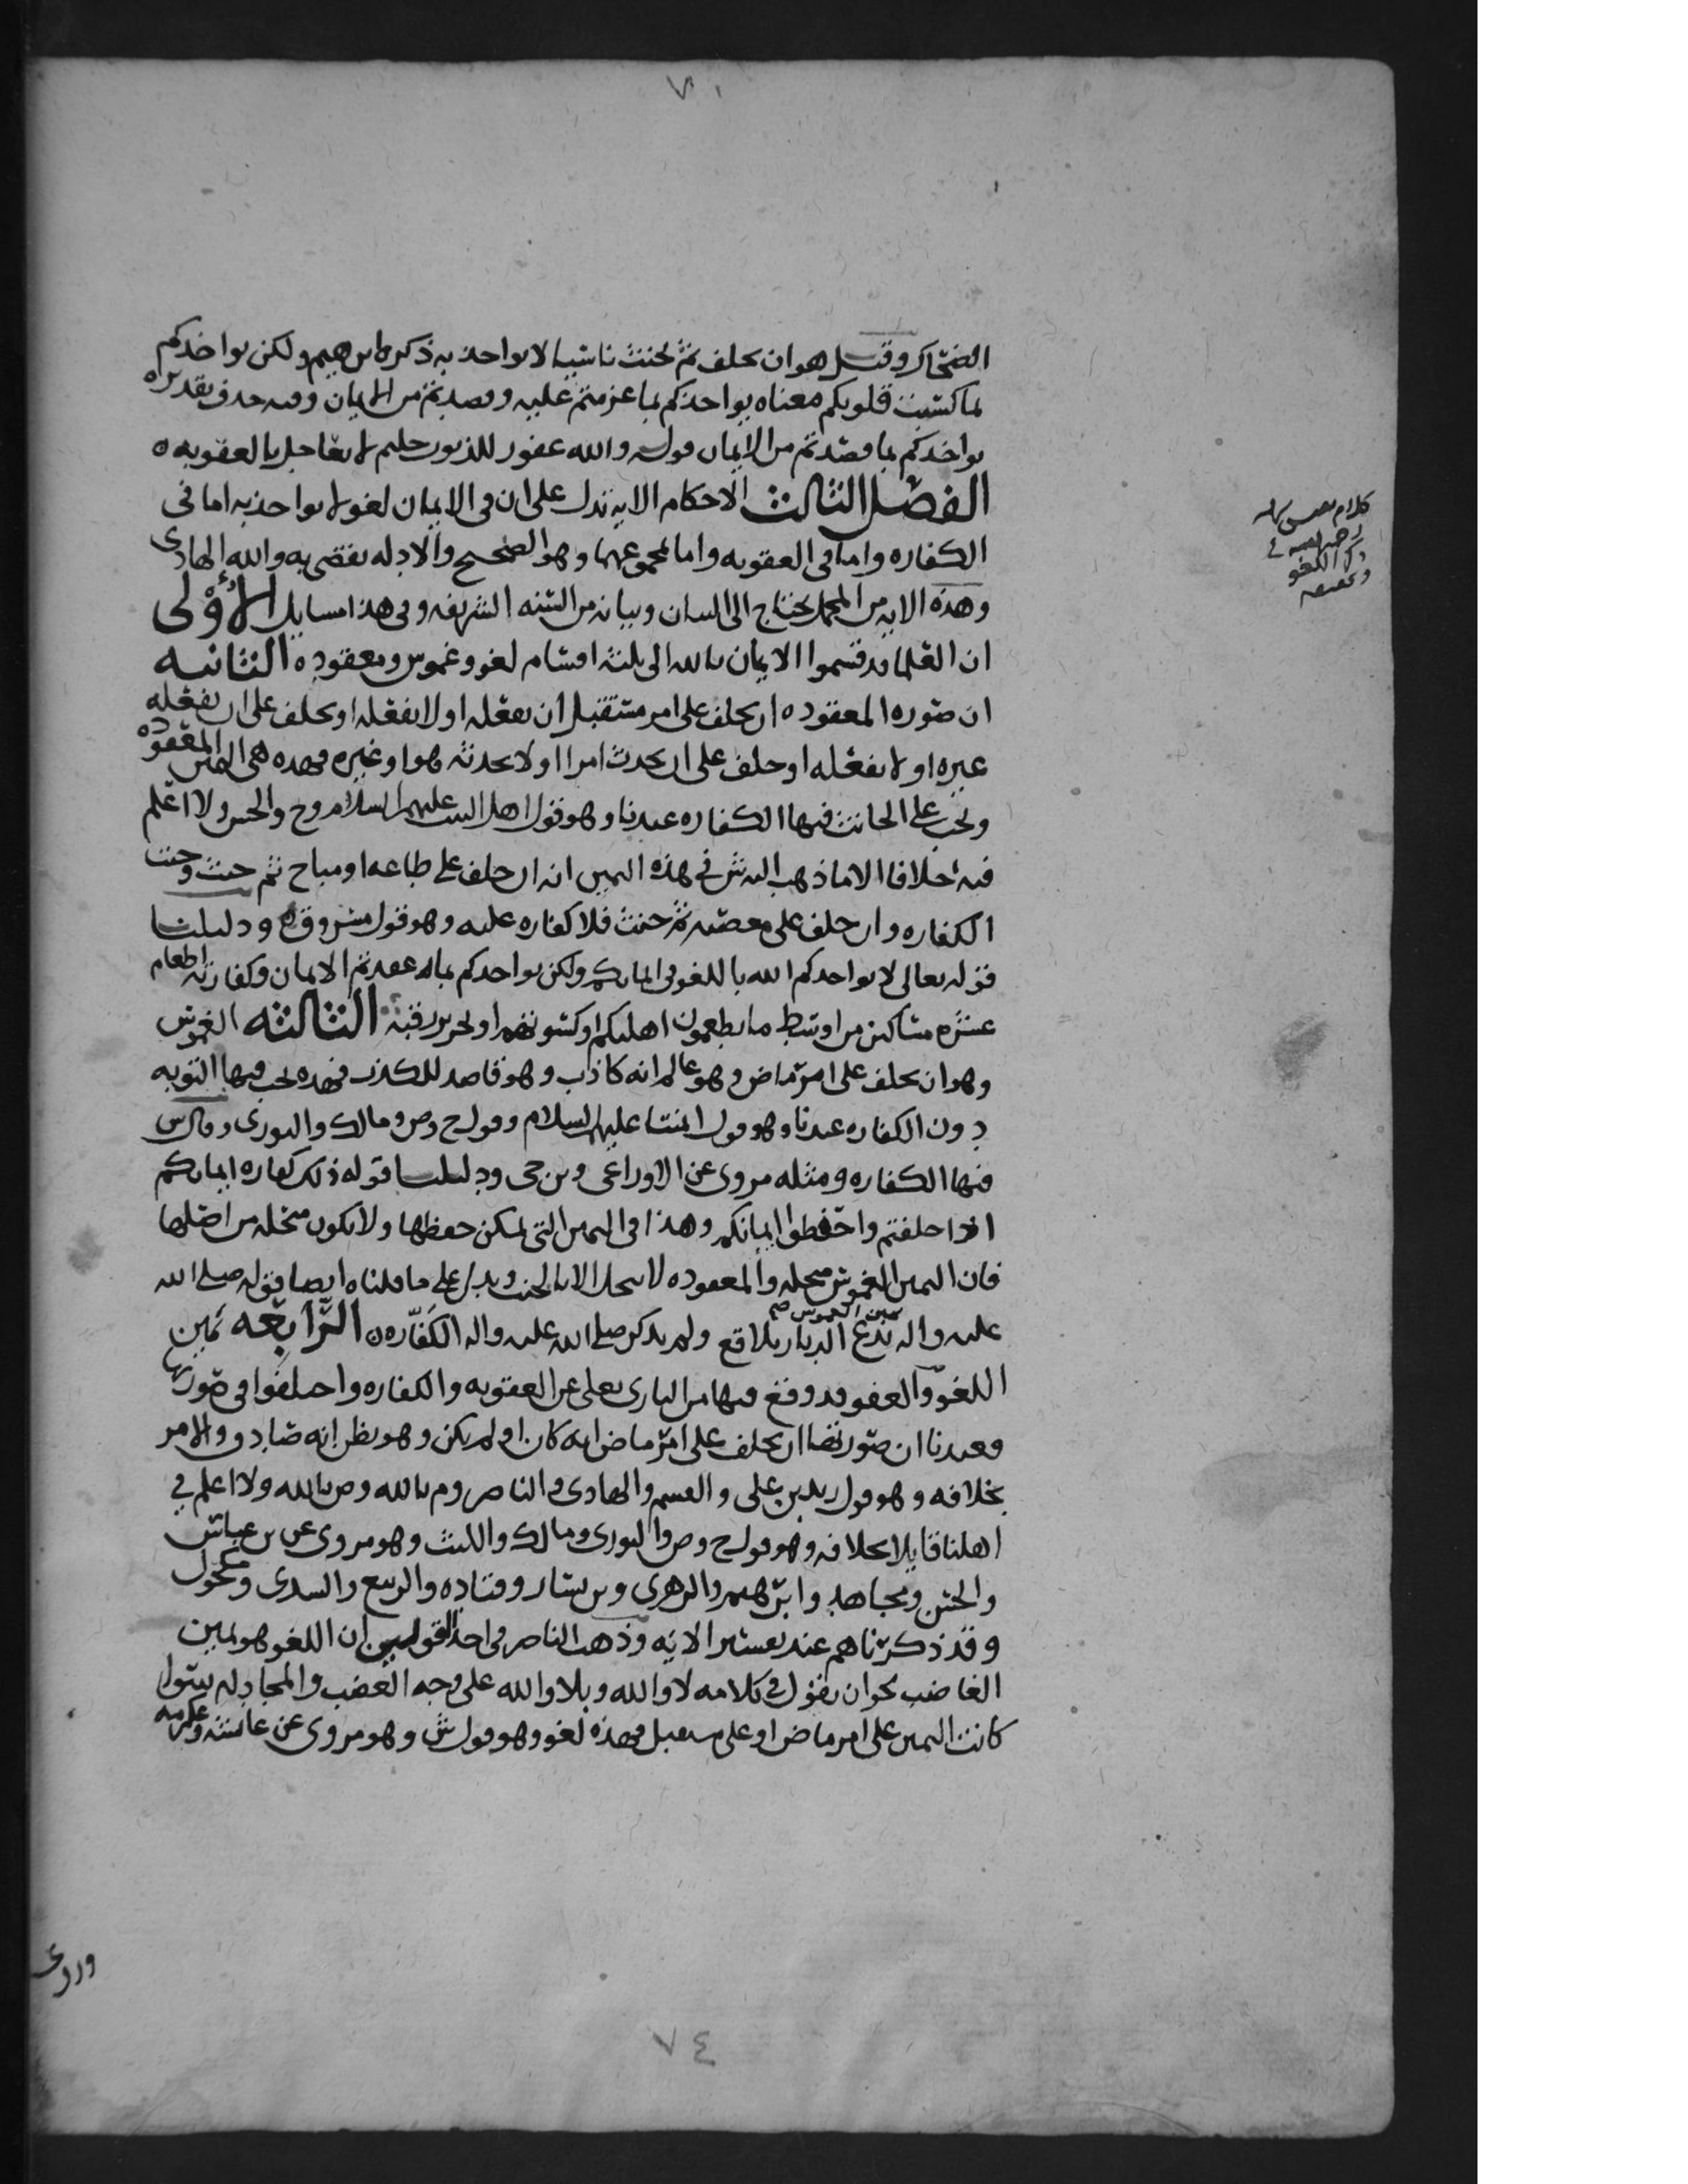 ٧٠
الضحاك وقيل هو ان يحلف ثم يحنث ناسيا لا يواخذ به ذكره ابرهيم ولكن يواخذكم
بما كسبت قلوبكم معناه يواخذكم بما عزمتم عليه وقصدتم من الايمان وفيه حذف تقديره
يواخذكم بما قصدتم من الايمان قوله والله غفور للذنوب حليم لا يعاجل بالعقوبه ه
الفصل الثالث الاحكام الايه تدل على ان في الايمان لغو لا يواخذ به اما في
الكفاره واما في العقوبه واما لمجموعهما وهو الصحيح والادله تقضي به والله الهادي
وهذه الايه من المجمل يحتاج الى البيان وبيانه من السنه الشريفه وفي هذا مسايل الأولى
ان العلما قد قسموا الايمان بالله الى ثلثه اقسام لغو وغموس ومعقوده الثانيه
ان صوره المعقوده ان يحلف على امر مستقبل ان يفعله او لا يفعله او يحلف على ان يفعله
غيره او لا يفعله او حلف على ان يحدث امرا او لا يحدثه هو او غيره فهذه هي اليمين المعقوده
ويجب على الحانث فيها الكفاره عندنا وهو قول اهل البيت عليهم السلام وح والحسن ولا اعلم
فيه اخلافا الا ما ذهب اليه ش في هذه اليمين انه ان حلف على طاعه او مباح ثم حنث وجبت
الكفاره وان حلف على معصيه ثم حنث فلا كفاره عليه وهو قول مسروق ه ودليلنا
قوله تعالى لا يواخذكم الله باللغو في ايمانكم ولكن يواخذكم بما عقدتم الايمان وكفارته اطعام
عشره مساكين من اوسط ما يطعمون اهليكم او كسوتهم او تحرير رقبه الثالثه الغموس
وهو ان يحلف على امر ماض وهو عالم انه كاذب وهو قاصد للكذب فهذه يجب فيها التوبه
دون الكفاره عندنا وهو قول ائمتنا عليهم السلام وقول ح وص ومالك والثوري وقال ش
فيها الكفاره ومثله مروي عن الاوزاعي وبن حي ودليلنا قوله ذلك كفاره ايمانكم
اذا حلفتم واحفظوا ايمانكم وهذا في اليمين التي يمكن حفظها ولا يكون منحله من اصلها
فان اليمين الغموس منحله والمعقوده لا ينحل الا بالحنث ويدل على ما قلناه ايضا قوله صلى الله
يمين الغموس صح
عليه واله تدع الديار بلاقع ولم يذكر صلى الله عليه واله الكفاره ه الرابعه يمين
اللغو والعفو قد وقع فيها من الباري تعلى عن العقوبه والكفاره واختلفوا في صورتها
فعندنا ان صورتها ان يحلف على امر ماض انه كان او لم يكن وهو يظن انه صادق والامر
بخلافه وهو قول زيد بن علي والقسم والهادي والناصر وم بالله وص بالله ولا اعلم في
اهلنا قايلا بخلافه وهو قول ح وص والثوري ومالك والليث وهو مروي عن بن عباس
والحسن ومجاهد وابرهيم والزهري وبن يسار وقتاده والربيع والسدي ومكحول
وقد ذكرناهم عند تفسير الايه وذهب الناصر في احد القولين ان اللغو هو يمين
الغاضب نحو ان يقول في كلامه لا والله وبلا والله على وجه الغضب والمجادله سوا
كانت اليمين على امر ماض او على مستقبل فهذه لغو وهو قول ش وهو مروي عن عائشه وعكرمه
كلام
رحمه الله في
ذكر اللغو
وروي
٧٤